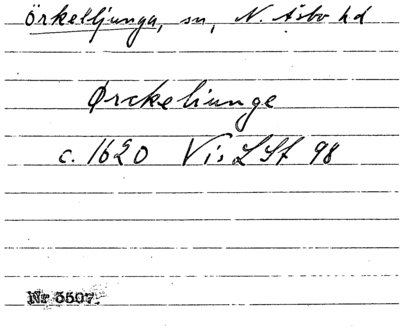 Örkelljunga, sn, N. Åsbo hd
Ørckeliunge
c. 1620 Vis LSt 98
Nr 5507.